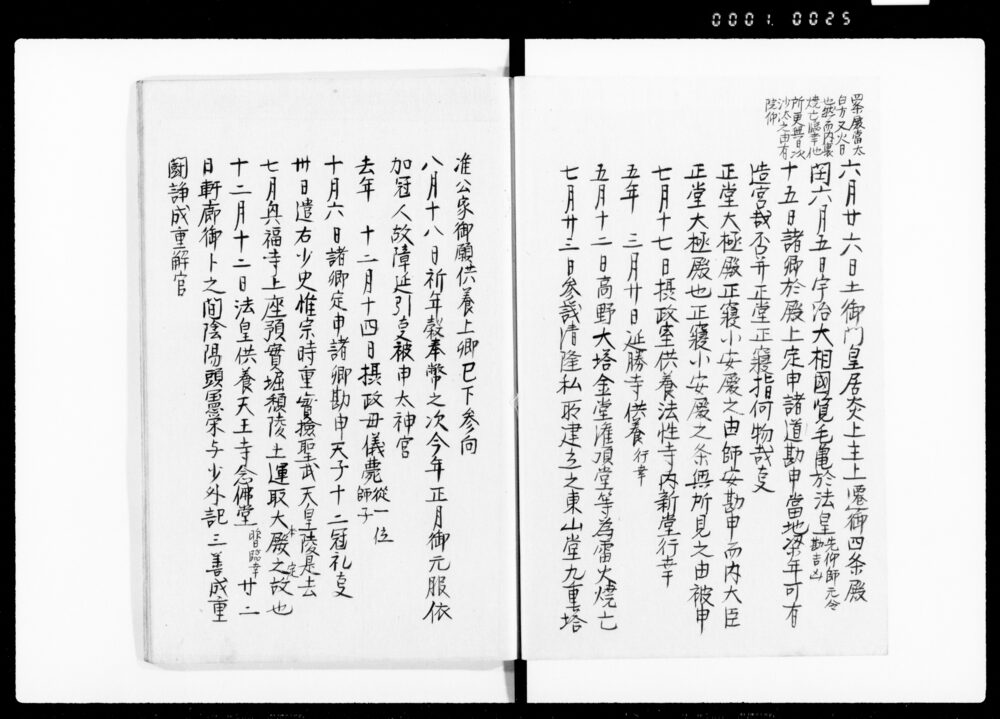 0001 0025
四条殿當太
白方又火日
也然而内裏
焼亡臨幸他
所更無日次
沙汰之由有
院仰
六月廿六日土御門皇居炎上主上遷御四条殿
閏六月五日宇治大相國覧毛亀於法皇先仰師元令勘吉凶
十五日諸卿於殿上定申諸道勘申當地咎年可有
造宮哉否并正堂正寝指何物哉事
正堂大極殿正寝小安殿之由師安勘申而内大臣
正堂大極殿也正寝小安殿之条無所見之由被申
七月十七日摂政室供養法性寺内新堂行幸
五年 三月廿日延勝寺供養行幸
五月十二日高野大塔金堂灌頂堂等為雷火焼亡
七月廿三日参議清隆私所建立之東山堂九重塔
准公家御願供養上卿已下参向
八月十八日祈年穀奉幣之次今年正月御元服依
加冠人故障延引事被申大神宮
去年 十二月十四日摂政母儀薨従一位師子
十月六日諸卿定申諸卿勘申天子十二冠礼事
卅日遣右少史惟宗時重實撿聖武天皇陵是去
七月興福寺上座預實堀頽陵土運取大殿本定之故也
十二月十二日法皇供養天王寺念佛堂暫臨幸廿二
日軒廊御卜之間陰陽頭憲栄与少外記三善成重
闘諍成重解官